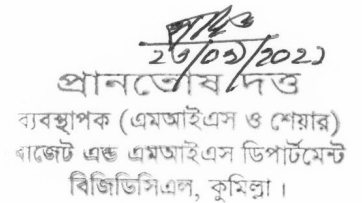 ২৬/০১/২০২১
প্রানতোষ দত্ত
ব্যবস্থাপক (এমআইএস ও শেয়ার)
বাজেট এন্ড এমআইএস ডিপার্টমেন্ট
বিজিডিসিএল, কুমিল্লা।